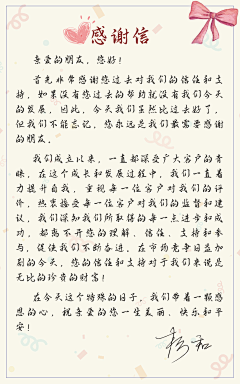 感谢信
亲爱的朋友，您好！
首先非常感谢您过去对我们的信任和支
持，如果没有您过去的帮助就没有我们今天
的发展，因此，今天我们虽然比过去好了，
但我们不能忘记，您永远是我们最需要感谢
的朋友。
我们成立以来，一直都深受广大客户的青
睐，在这个成长和发展过程中，我们一直着
力提升自我，重视每一位客户对我们的评
价，热衷接受每一位客户对我们的监督和建
议，我们深知我们所取得的每一点进步和成
功，都离不开您的理解、信任、支持和参
与，促使我们不断奋进，在市场竞争日益加
剧的今天，您的信任和支持对于我们来说是
无比的珍贵的财富！
在今天这个特殊的日子，我们带着一颗感
恩的心，祝亲爱的您一生美丽、快乐和平
安！